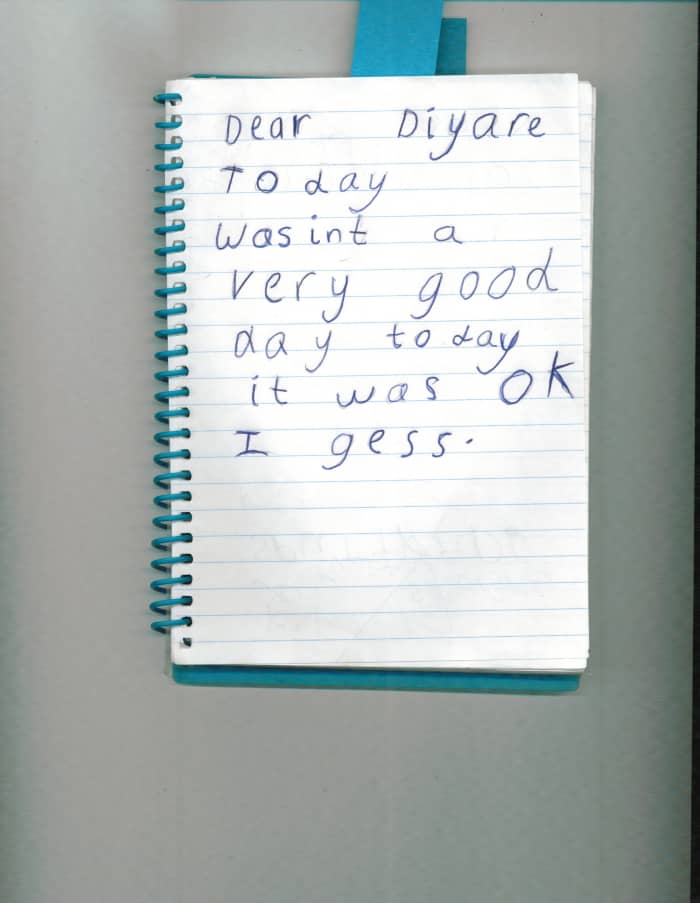 Dear Diyare
Today
Wasint a
very good
day today
it was OK
I gess.